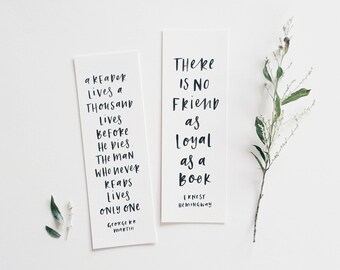 A READER
LIVES A
THOUSAND
LIVES
BEFORE
HE DIES
THE MAN
WHO NEVER
READS
LIVES
ONLY ONE
GEORGE RR
MARTIN
THERE
IS NO
FRIEND
AS
LOYAL
AS A
BOOK
ERNEST
HEMINGWAY